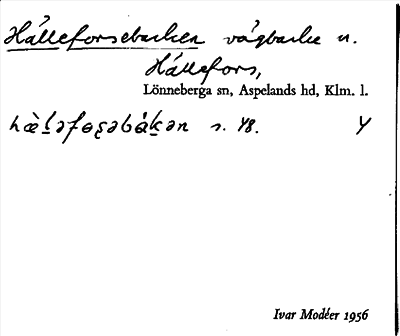 Hälleforsebacken vägbacke n.
Hällefors,
Lönneberga sn, Aspelands hd, Klm. l.
s. 48. 4
Ivar Modéer 1956